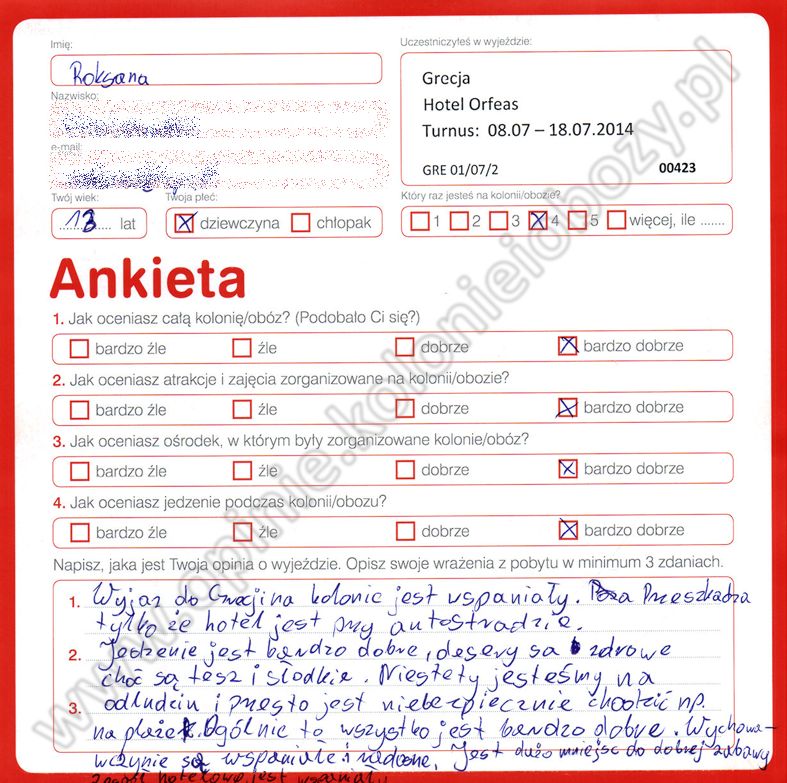 Imię:
Roksana
Nazwisko:
e-mail:
Twój wiek:
13 lat
Twoja płeć:
dziewczyna chłopak
Uczestniczyłeś w wyjeździe:
Grecja
Hotel Orfeas
Turnus: 08.07 – 18.07.2014
GRE 01/07/2 00423
Który raz jesteś na kolonii/obozie?
1 2 3 4 5 więcej, ile .......
Ankieta
1. Jak oceniasz całą kolonię/obóz? (Podobało Ci się?)
bardzo źle źle dobrze bardzo dobrze
2. Jak oceniasz atrakcje i zajęcia zorganizowane na kolonii/obozie?
bardzo źle źle dobrze bardzo dobrze
3. Jak oceniasz ośrodek, w którym były zorganizowane kolonie/obóz?
bardzo źle źle dobrze bardzo dobrze
4. Jak oceniasz jedzenie podczas kolonii/obozu?
bardzo źle źle dobrze bardzo dobrze
Napisz, jaka jest Twoja opinia o wyjeździe. Opisz swoje wrażenia z pobytu w minimum 3 zdaniach.
1. Wyjaz do Grecji na kolonie jest wspaniały. Przeszkadza
tylko że hotel jest przy autostradzie.
2. Jedzenie jest bardzo dobre, desery są zdrowe
choć są tesz i słodkie. Niestety jesteśmy na
3. odludziu i przesto jest niebezpiecznie chodzić np.
na plaże. Ogólnie to wszystko jest bardzo dobre. Wychowa-
wczynie są wspaniałe i radosne. Jest dużo miejsc do dobrej zabawy
hotelowa jest
www.opinie.kolonieiobozy.pl